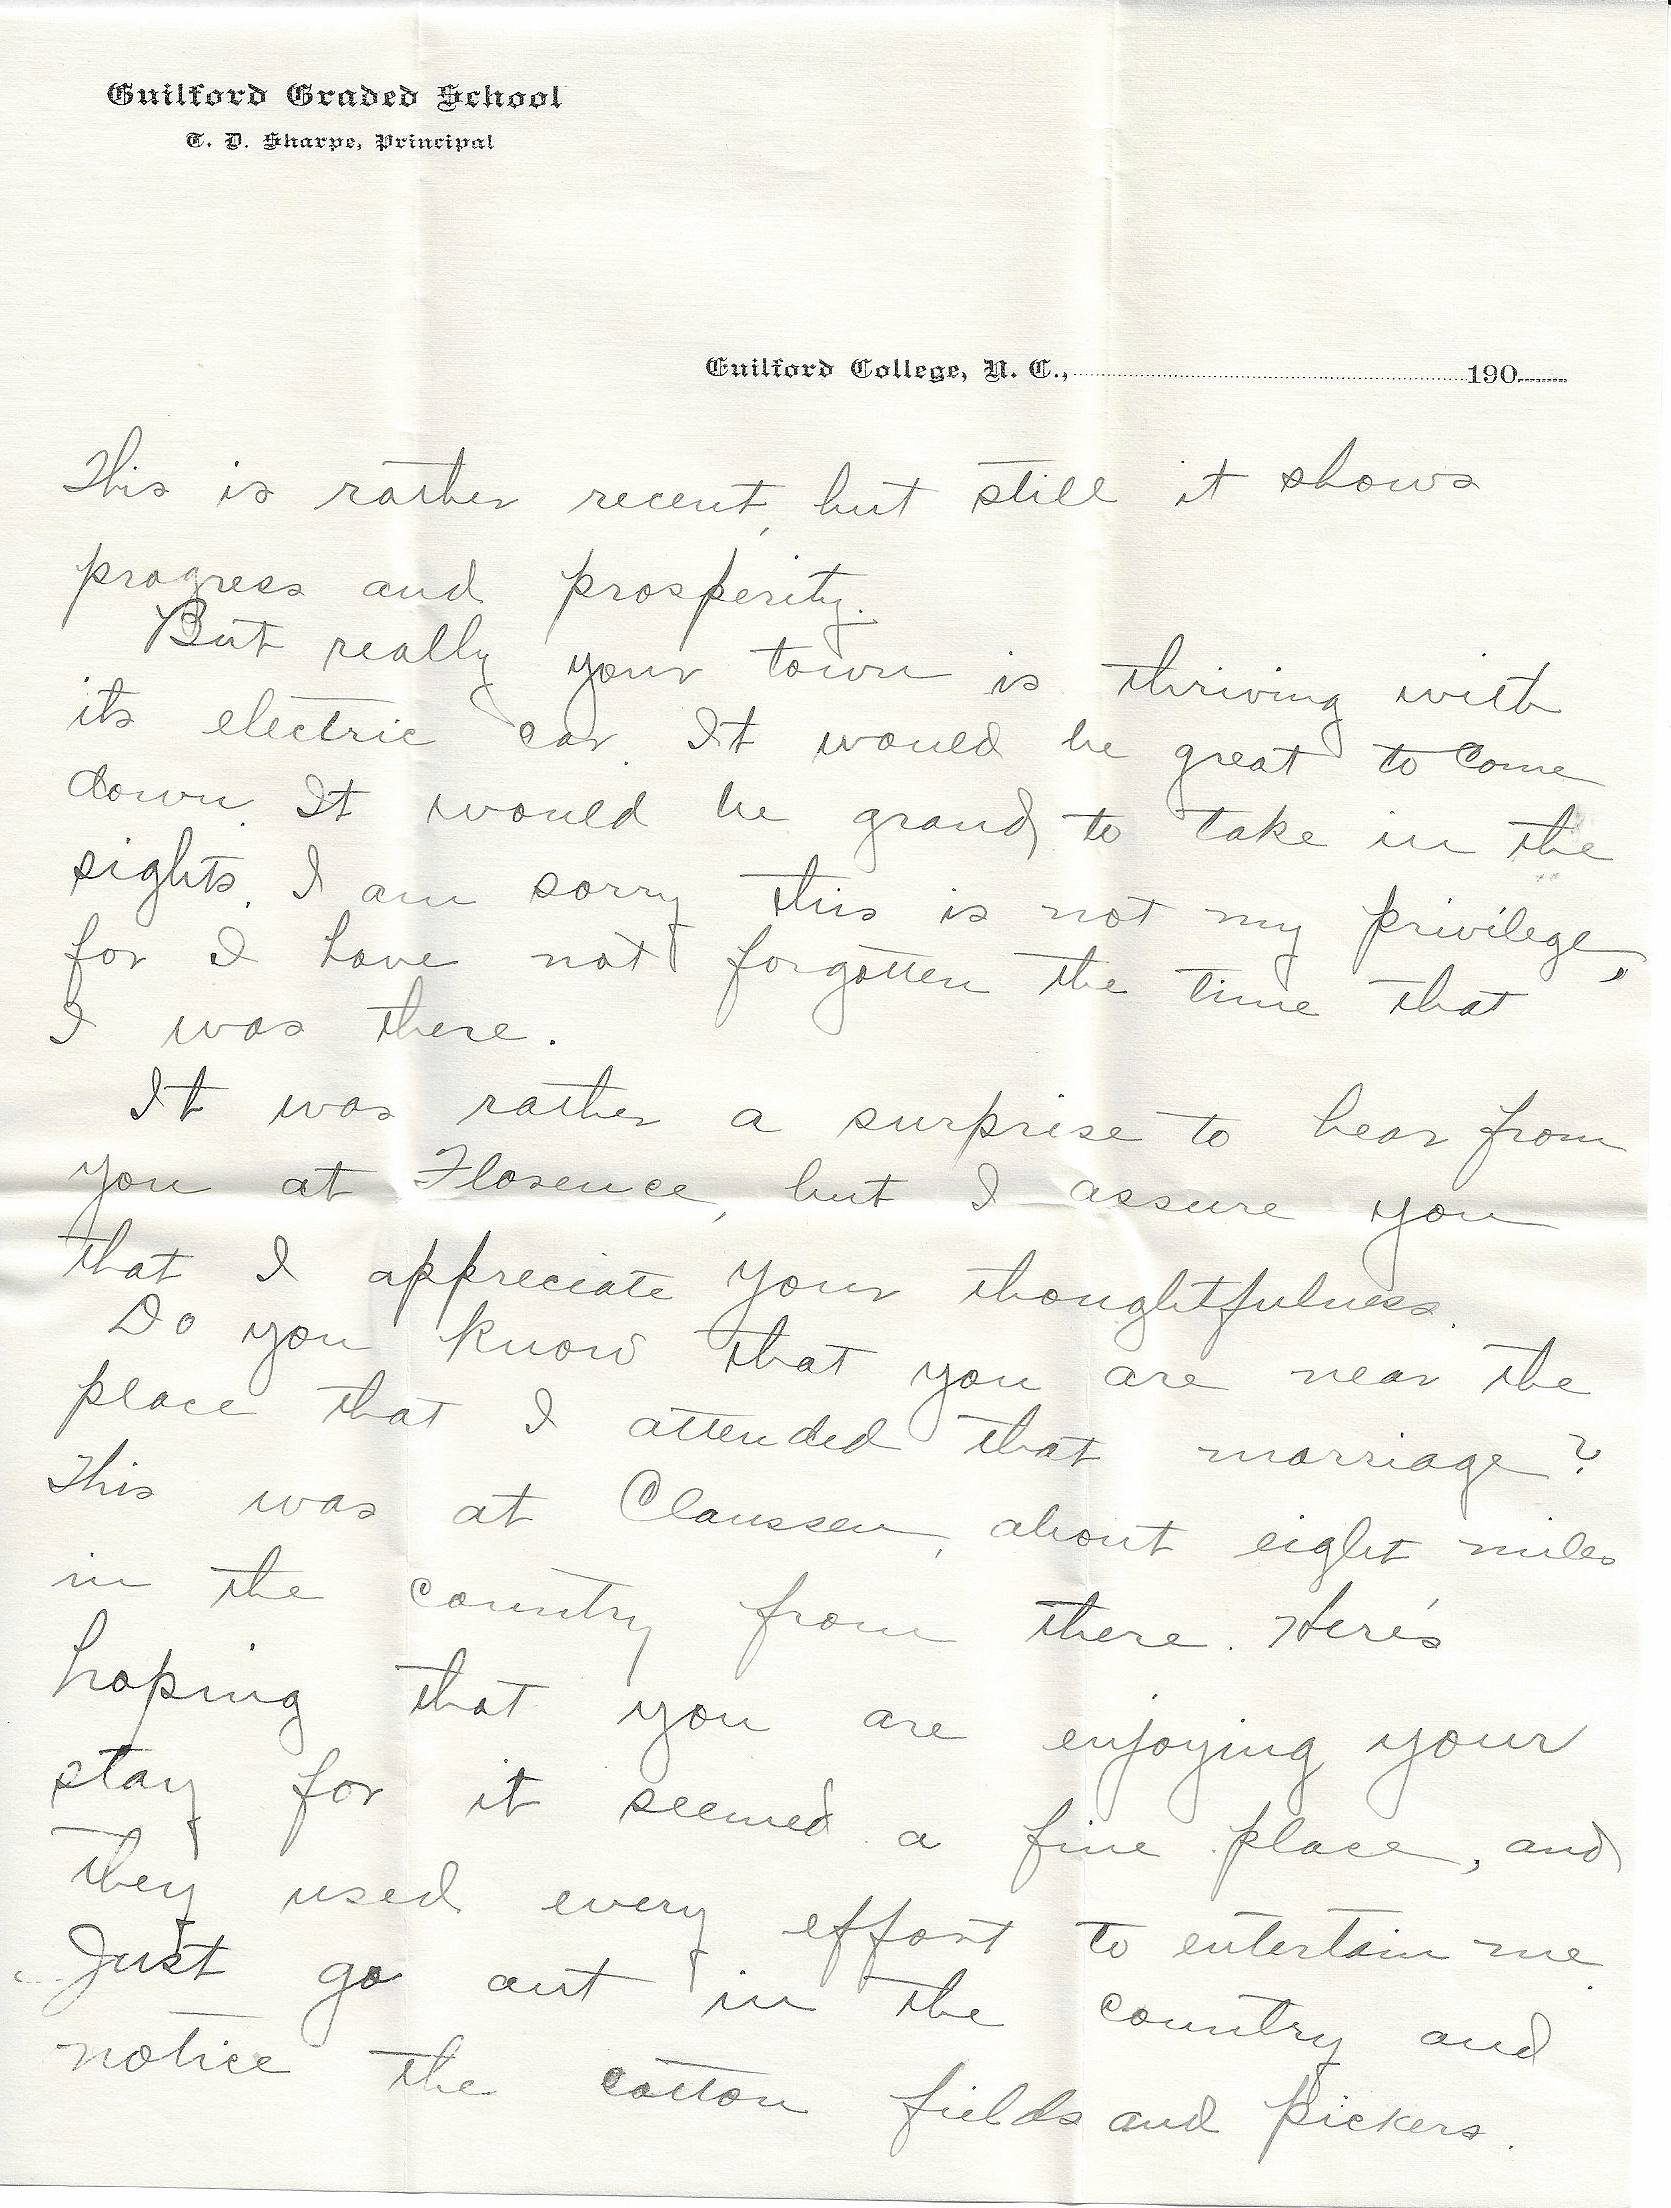 Guilford Graded School
T. D. Sharpe, Principal
Guilford College, N. C., 190
This is rather recent, but still it shows
progress and prosperity.
But really your town is thriving with
its electric car. It would be great to come
down. It would be grand to take in the
sights. I am sorry this is not my privilege,
for I have not forgotten the time that
I was there.
It was rather a surprise to hear from
you at Florence, but I assure you
that I appreciate your thoughtfulness.
Do you know that you are near the
place that I attended that marriage?
This was at Claussen, about eight miles
in the country from there. Here's
hoping that you are enjoying your
stay for it seemed a fine place, and
they used every effort to entertain me.
Just go out in the country and
notice the cotton fields and pickers.